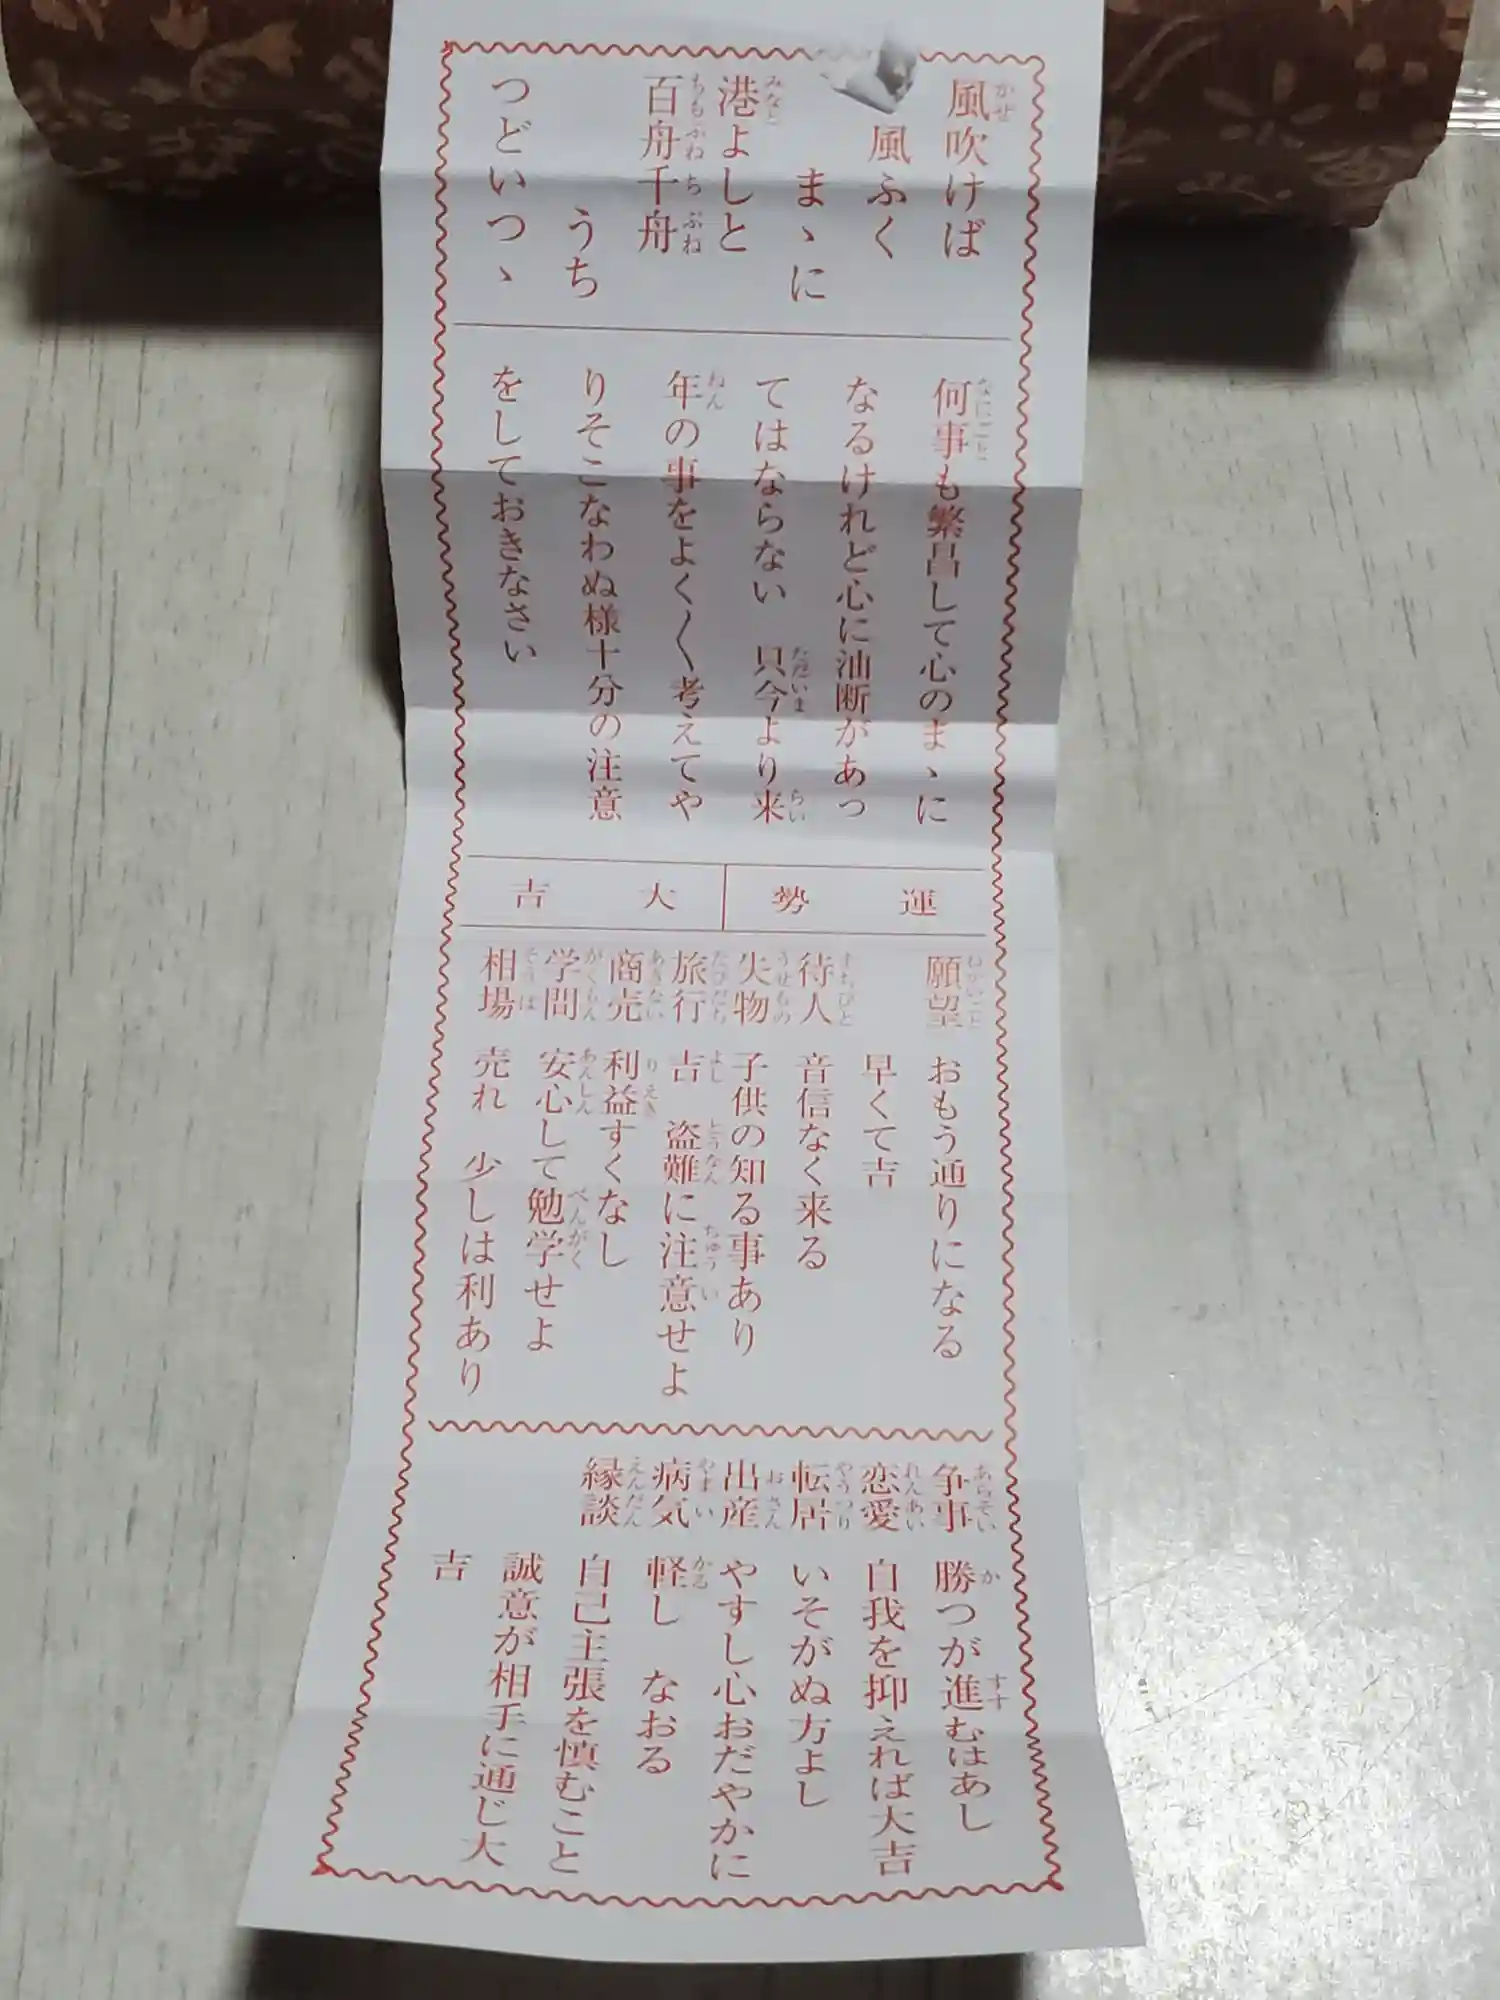 風吹けば
風ふく
まゝに
港よしと
百舟千舟
うち
つどいつゝ
何事も繁昌して心のまゝに
なるけれど心に油断があっ
てはならない　只今より来
年の事をよく〳〵考えてや
りそこなわぬ様十分の注意
をしておきなさい
運勢　大吉
願望　おもう通りになる
早くて吉
待人　音信なく来る
失物　子供の知る事あり
旅行　吉　盗難に注意せよ
商売　利益すくなし
学問　安心して勉学せよ
相場　売れ　少しは利あり
争事　勝つが進むはあし
恋愛　自我を抑えれば大吉
転居　いそがぬ方よし
出産　やすし心おだやかに
病気　軽し　なおる
縁談　自己主張を慎むこと
誠意が相手に通じ大
吉